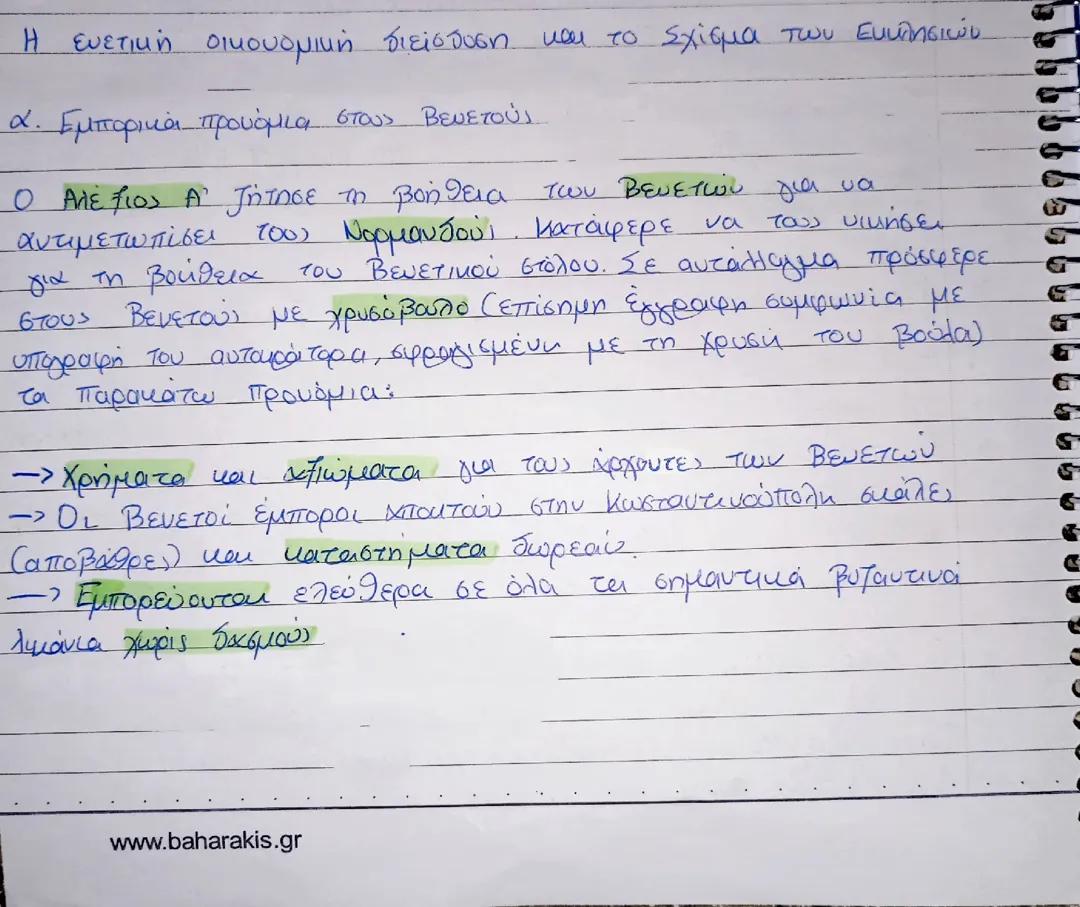 Η ενετική οικονομική διείσδυση και το Σχίσμα των Εκκλησιών
α. Εμπορικά προνόμια στους Βενετούς
Ο Αλέξιος Α' ζήτησε τη βοήθεια των Βενετών για να
αντιμετωπίσει τους Νορμανδούς. Κατάφερε να τους νικήσει
για τη βοήθεια του Βενετικού στόλου. Σε αντάλλαγμα πρόσφερε
στους Βενετούς με χρυσόβουλο (επίσημη έγγραφη συμφωνία με
υπογραφή του αυτοκράτορα, σφραγισμένη με τη χρυσή του βούλα)
τα παρακάτω προνόμια:
—> Χρήματα και αξιώματα για τους άρχοντες των Βενετών
—> Οι Βενετοί έμποροι αποκτούν στην Κωσταντινούπολη σκάλες
(αποβάθρες) και καταστήματα δωρεάν.
—> Εμπορεύονται ελεύθερα σε όλα τα σημαντικά βυζαντινά
λιμάνια χωρίς δασμούς
www.baharakis.gr